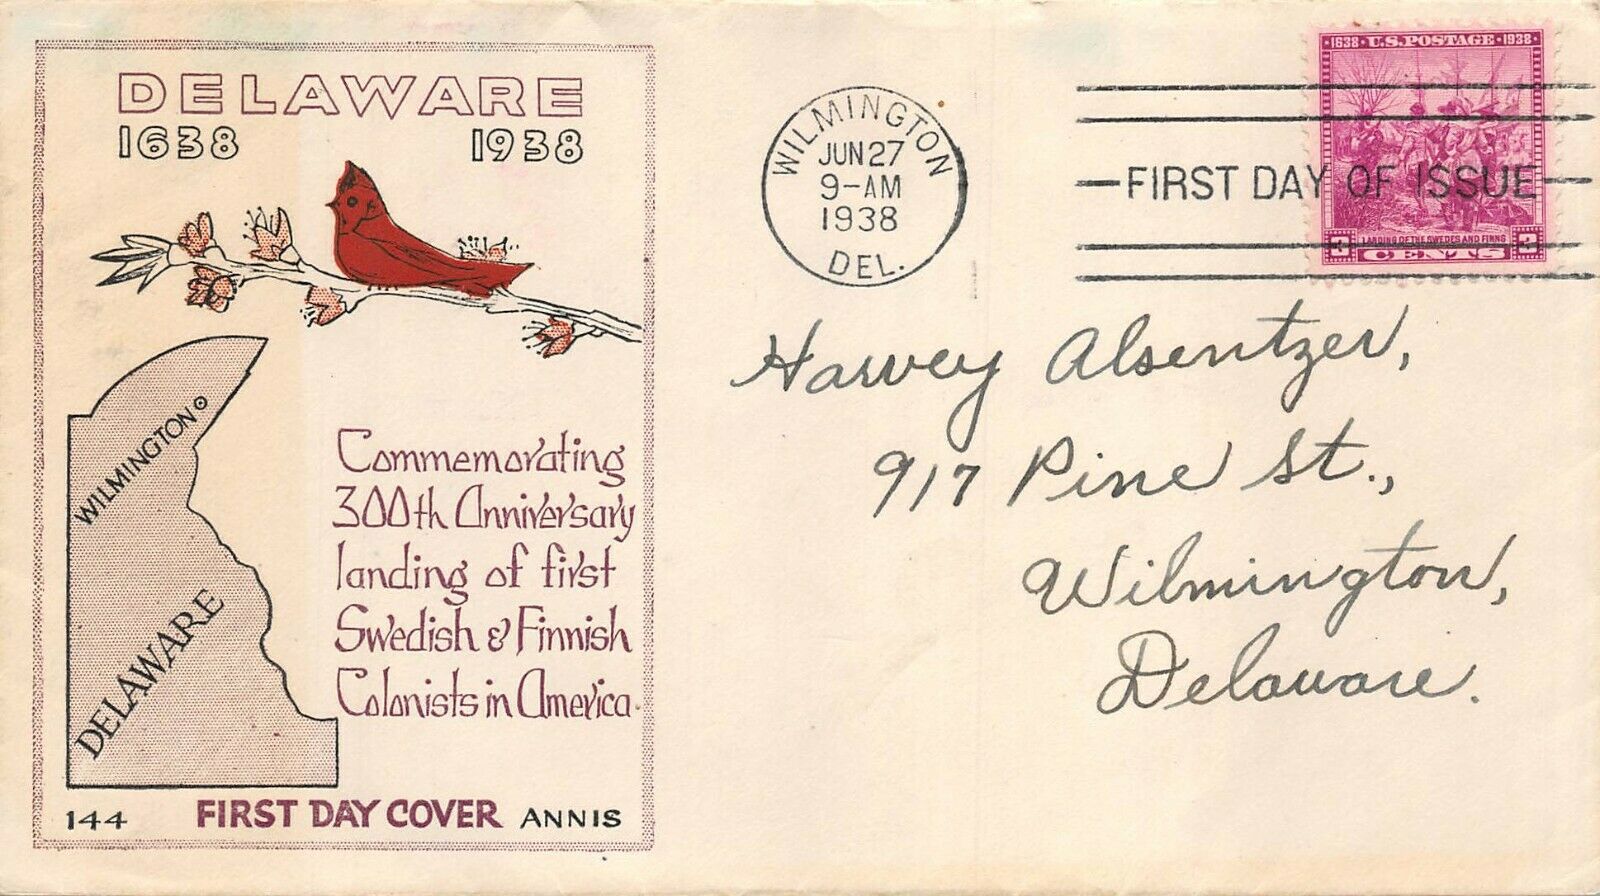 DELAWARE
1638 1938
WILMINGTON
DELAWARE
Commemorating
300th Anniversary
landing of first
Swedish & Finnish
Colonists in America
144 FIRST DAY COVER ANNIS
WILMINGTON
JUN 27
9-AM
1938
DEL.
FIRST DAY OF ISSUE
1638 · U.S. POSTAGE · 1938
LANDING OF THE SWEDES AND FINNS
3 CENTS 3
Harvey Alsentzer,
917 Pine St.,
Wilmington,
Delaware.